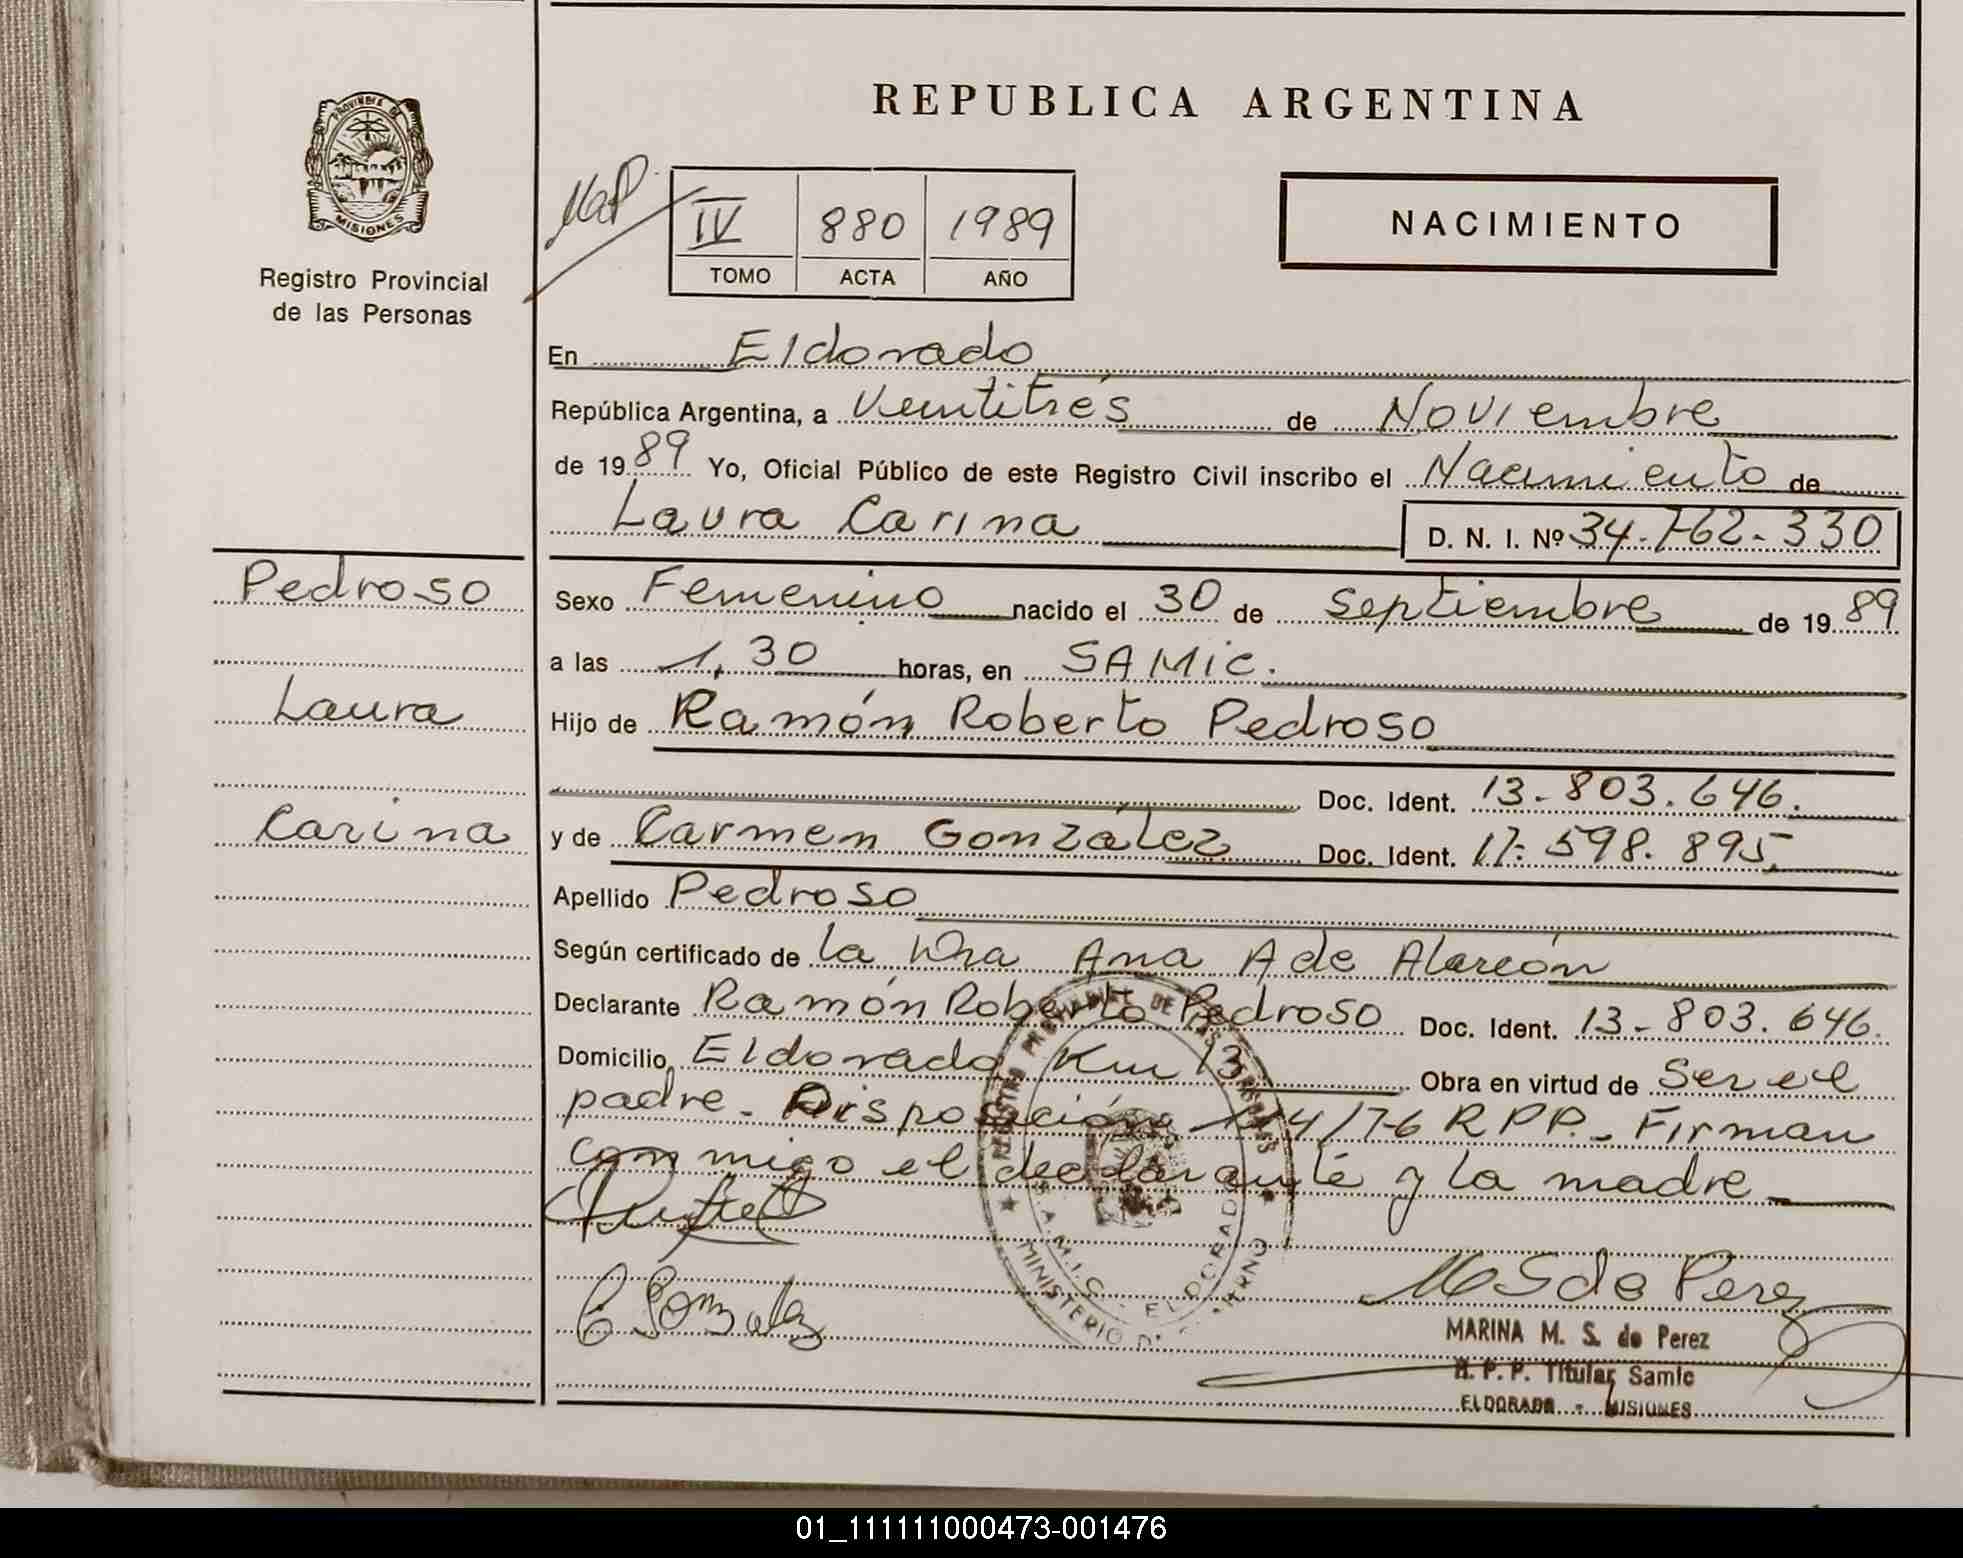 REPUBLICA ARGENTINA
PROVINCIA DE
MISIONES
Registro Provincial
de las Personas
IV 880 1989
TOMO ACTA AÑO
NACIMIENTO
En Eldorado
República Argentina, a Veintitrés de Noviembre
de 1989 Yo, Oficial Público de este Registro Civil inscribo el Nacimiento de
Laura Carina D. N. I. Nº 34.762.330
Pedroso
Laura
Carina
Sexo Femenino nacido el 30 de Septiembre de 1989
a las 1,30 horas, en SAMIC.
Hijo de Ramón Roberto Pedroso
Doc. Ident. 13.803.646.
y de Carmen González Doc. Ident. 17.598.895.
Apellido Pedroso
Según certificado de la Dra Ana A de Alarcón
Declarante Ramón Roberto Pedroso Doc. Ident. 13.803.646.
Domicilio Eldorado Km 13 Obra en virtud de Ser el
padre. Disposición 114/76 R P P. Firman
conmigo el declarante y la madre
C Gonzalez
MS de Perez
MARINA M. S. de Perez
R. P. P. Titular Samic
ELDORADO - MISIONES
REGISTRO PROVINCIAL DE LAS PERSONAS
S.A.M.I.C. - ELDORADO
MINISTERIO DE GOBIERNO
01_111111000473-001476